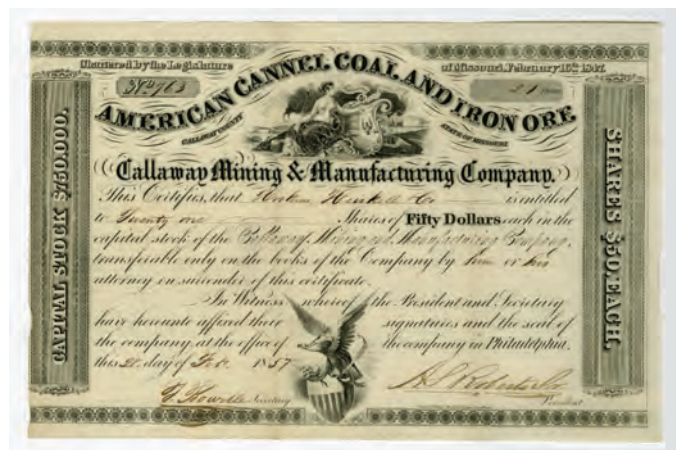 Chartered by the Legislature of Missouri, February 16th 1847.
No 763
21
AMERICAN CANNEL COAL AND IRON ORE
CALLAWAY COUNTY STATE OF MISSOURI
Callaway Mining & Manufacturing Company.
This Certifies, that is entitled
to Twenty one Shares of Fifty Dollars each in the
capital stock of the Callaway Mining and Manufacturing Company,
transferable only on the books of the Company by him or his
attorney on surrender of this certificate.
In Witness whereof the President and Secretary
have hereunto affixed their signatures and the seal of
the company, at the office of the company in Philadelphia.
this 21 day of Feb. 1857
Secretary
President
CAPITAL STOCK $750,000.
SHARES $50, EACH.